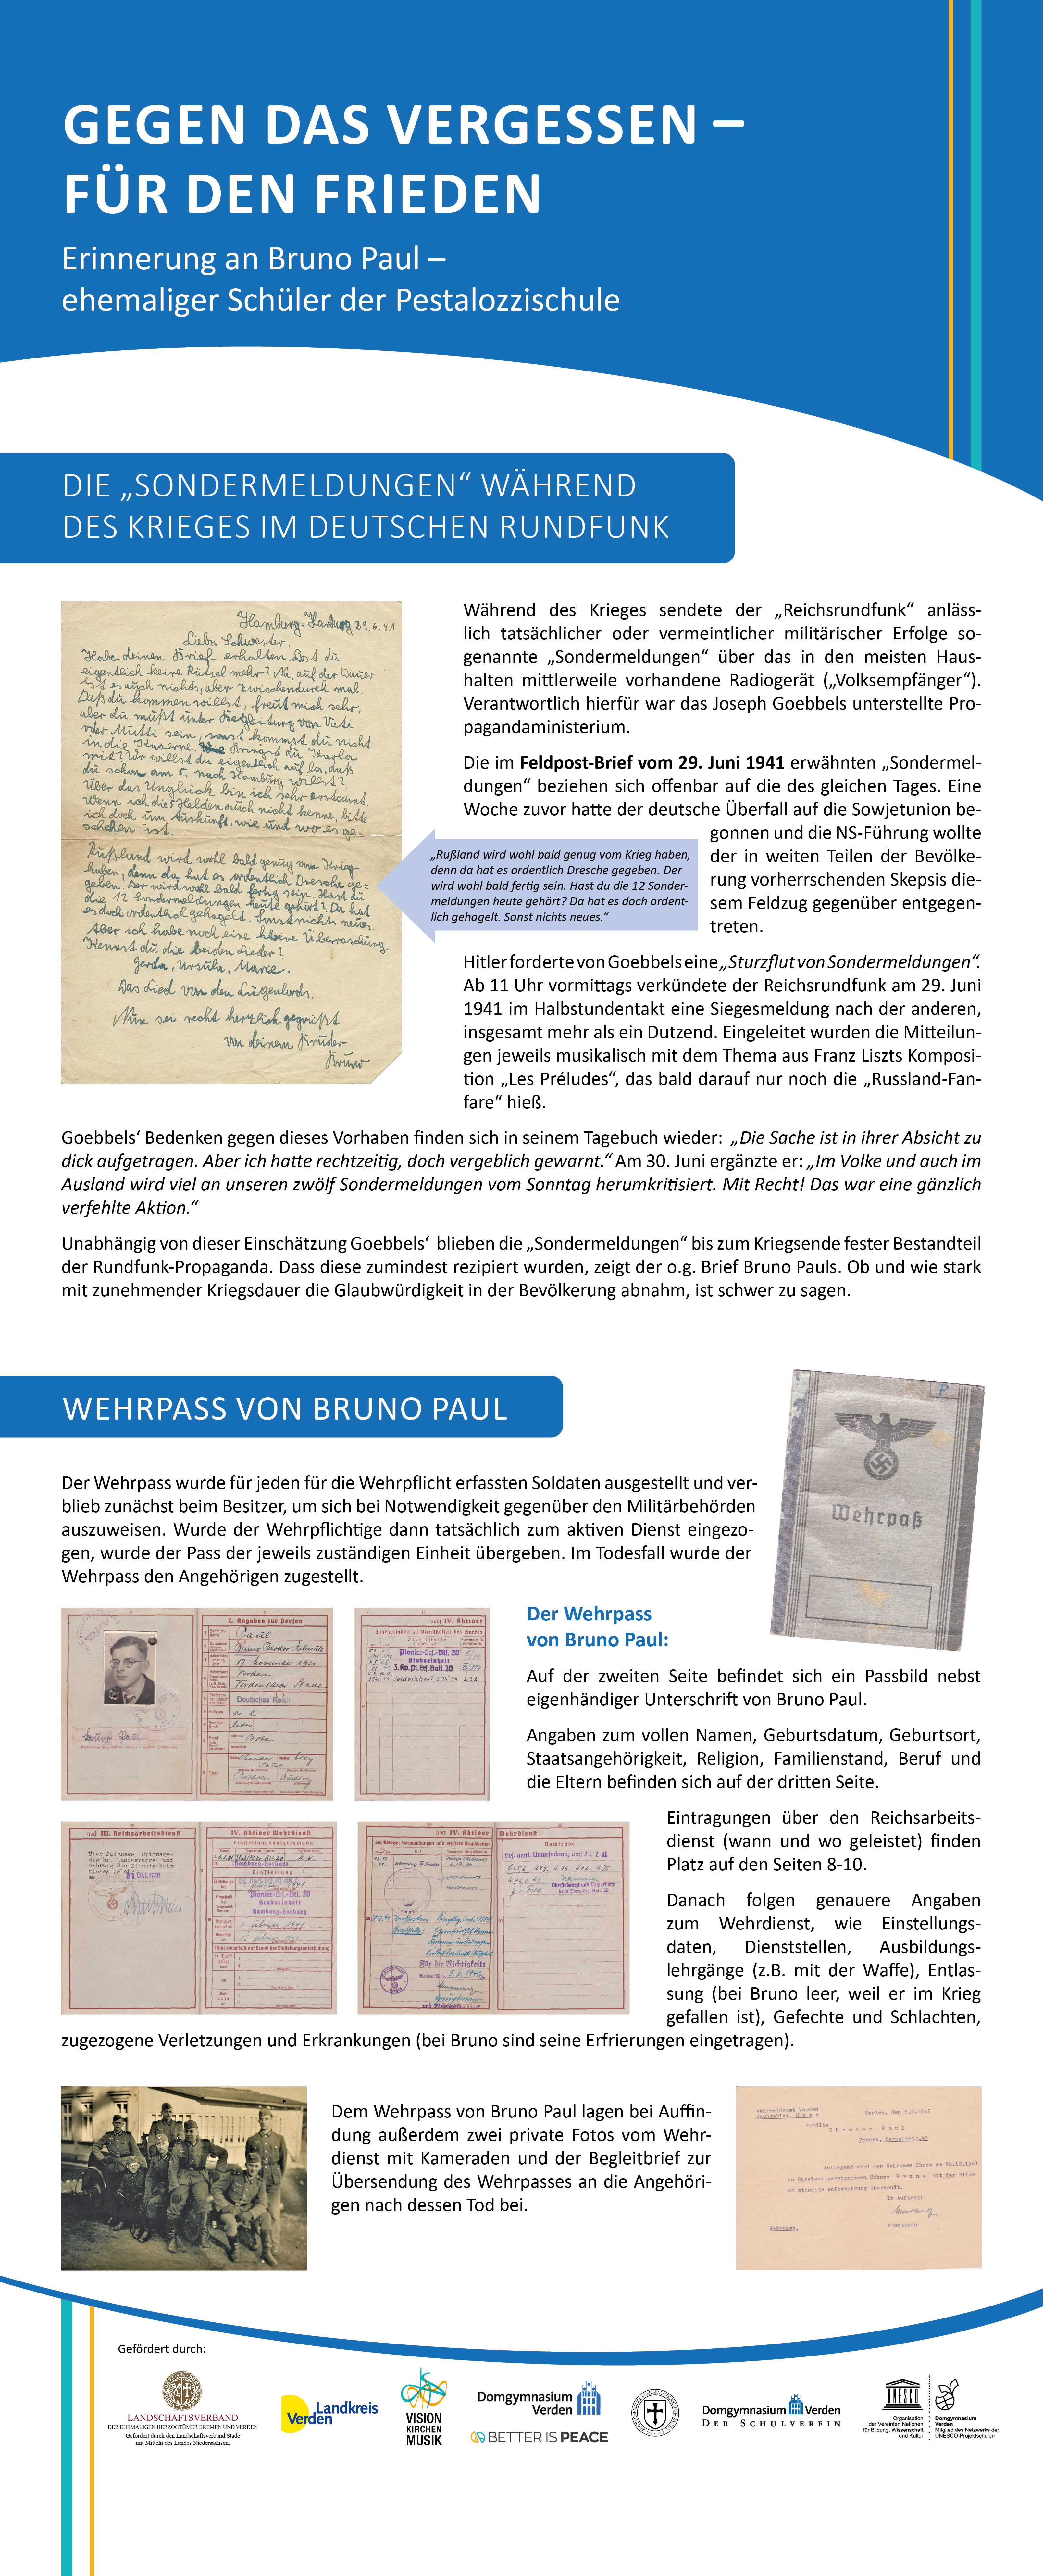 GEGEN DAS VERGESSEN –
FÜR DEN FRIEDEN
Erinnerung an Bruno Paul –
ehemaliger Schüler der Pestalozzischule
DIE „SONDERMELDUNGEN“ WÄHREND
DES KRIEGES IM DEUTSCHEN RUNDFUNK
Hamburg-Harburg 29.6.41
Liebe Schwester,
Habe deinen Brief erhalten. Hast du
eigentlich keine Rätsel mehr? Na, auf der Dauer
ist es auch nichts, aber zwischendurch mal.
Daß du kommen willst, freut mich sehr,
aber du mußt unter Begleitung von Vati
oder Mutti sein, sonst kommst du nicht
in die Kaserne. Bringst du Karla
mit? Wo willst du eigentlich auf los, daß
du schon am 5. nach Hamburg willst?
Über das Unglück bin ich sehr erstaunt.
Wenn ich die Helden auch nicht kenne, bitte
ich doch um Auskunft, wie und wo es ge-
schehen ist.
Rußland wird wohl bald genug vom Krieg
haben, denn da hat es ordentlich Dresche ge-
geben. Der wird wohl bald fertig sein. Hast du
die 12 Sondermeldungen heute gehört? Da hat
es doch ordentlich gehagelt. Sonst nichts neues.
Aber ich habe noch eine kleine Überraschung.
Kennst du die beiden Lieder?
Gerda, Ursula, Marie.
Das Lied von den Lügenlords.
Nun sei recht herzlich gegrüßt
von deinem Bruder
Bruno
Während des Krieges sendete der „Reichsrundfunk“ anläss-
lich tatsächlicher oder vermeintlicher militärischer Erfolge so-
genannte „Sondermeldungen“ über das in den meisten Haus-
halten mittlerweile vorhandene Radiogerät („Volksempfänger“).
Verantwortlich hierfür war das Joseph Goebbels unterstellte Pro-
pagandaministerium.
Die im Feldpost-Brief vom 29. Juni 1941 erwähnten „Sondermel-
dungen“ beziehen sich offenbar auf die des gleichen Tages. Eine
Woche zuvor hatte der deutsche Überfall auf die Sowjetunion be-
gonnen und die NS-Führung wollte
der in weiten Teilen der Bevölke-
rung vorherrschenden Skepsis die-
sem Feldzug gegenüber entgegen-
treten.
„Rußland wird wohl bald genug vom Krieg haben,
denn da hat es ordentlich Dresche gegeben. Der
wird wohl bald fertig sein. Hast du die 12 Sonder-
meldungen heute gehört? Da hat es doch ordent-
lich gehagelt. Sonst nichts neues.“
Hitler forderte von Goebbels eine „Sturzflut von Sondermeldungen“.
Ab 11 Uhr vormittags verkündete der Reichsrundfunk am 29. Juni
1941 im Halbstundentakt eine Siegesmeldung nach der anderen,
insgesamt mehr als ein Dutzend. Eingeleitet wurden die Mitteilun-
gen jeweils musikalisch mit dem Thema aus Franz Liszts Komposi-
tion „Les Préludes“, das bald darauf nur noch die „Russland-Fan-
fare“ hieß.
Goebbels‘ Bedenken gegen dieses Vorhaben finden sich in seinem Tagebuch wieder: „Die Sache ist in ihrer Absicht zu
dick aufgetragen. Aber ich hatte rechtzeitig, doch vergeblich gewarnt.“ Am 30. Juni ergänzte er: „Im Volke und auch im
Ausland wird viel an unseren zwölf Sondermeldungen vom Sonntag herumkritisiert. Mit Recht! Das war eine gänzlich
verfehlte Aktion.“
Unabhängig von dieser Einschätzung Goebbels‘ blieben die „Sondermeldungen“ bis zum Kriegsende fester Bestandteil
der Rundfunk-Propaganda. Dass diese zumindest rezipiert wurden, zeigt der o.g. Brief Bruno Pauls. Ob und wie stark
mit zunehmender Kriegsdauer die Glaubwürdigkeit in der Bevölkerung abnahm, ist schwer zu sagen.
WEHRPASS VON BRUNO PAUL
P
Wehrpaß
Der Wehrpass wurde für jeden für die Wehrpflicht erfassten Soldaten ausgestellt und ver-
blieb zunächst beim Besitzer, um sich bei Notwendigkeit gegenüber den Militärbehörden
auszuweisen. Wurde der Wehrpflichtige dann tatsächlich zum aktiven Dienst eingezo-
gen, wurde der Pass der jeweils zuständigen Einheit übergeben. Im Todesfall wurde der
Wehrpass den Angehörigen zugestellt.
I. Angaben zur Person
Paul
Bruno Theodor
17. November 1921
Verden
Deutsches Reich
ledig
Bote
Bruno Paul
noch IV. Aktiver
Pionier-Ers.-Btl. 20
Stabseinheit
Der Wehrpass
von Bruno Paul:
Auf der zweiten Seite befindet sich ein Passbild nebst
eigenhändiger Unterschrift von Bruno Paul.
Angaben zum vollen Namen, Geburtsdatum, Geburtsort,
Staatsangehörigkeit, Religion, Familienstand, Beruf und
die Eltern befinden sich auf der dritten Seite.
noch III. Reichsarbeitsdienst
IV. Aktiver Wehrdienst
Hamburg-Harburg
Pionier-Ers.-Btl. 20
Stabseinheit
Hamburg-Harburg
noch IV. Aktiver
Wehrdienst
Nachträge
Für die Richtigkeit:
Eintragungen über den Reichsarbeits-
dienst (wann und wo geleistet) finden
Platz auf den Seiten 8-10.
Danach folgen genauere Angaben
zum Wehrdienst, wie Einstellungs-
daten, Dienststellen, Ausbildungs-
lehrgänge (z.B. mit der Waffe), Entlas-
sung (bei Bruno leer, weil er im Krieg
gefallen ist), Gefechte und Schlachten,
zugezogene Verletzungen und Erkrankungen (bei Bruno sind seine Erfrierungen eingetragen).
Dem Wehrpass von Bruno Paul lagen bei Auffin-
dung außerdem zwei private Fotos vom Wehr-
dienst mit Kameraden und der Begleitbrief zur
Übersendung des Wehrpasses an die Angehöri-
gen nach dessen Tod bei.
Wehrmeldeamt Verden
Verden, den
Familie
Theodor Paul
Verden,
Anliegend wird der Wehrpass Ihres am 30.12.1941
in Russland verstorbenen Sohnes Bruno mit der Bitte
um ständige Aufbewahrung übersandt.
Im Auftrag:
Hauptmann
Wehrpass.
Gefördert durch:
LANDSCHAFTSVERBAND
DER EHEMALIGEN HERZOGTÜMER BREMEN UND VERDEN
Gefördert durch den Landschaftsverband Stade
mit Mitteln des Landes Niedersachsen.
Landkreis
Verden
VISION
KIRCHEN
MUSIK
Domgymnasium
Verden
BETTER IS PEACE
Domgymnasium Verden
DER SCHULVEREIN
UNESCO
Organisation
der Vereinten Nationen
für Bildung, Wissenschaft
und Kultur
Domgymnasium
Verden
Mitglied des Netzwerks der
UNESCO-Projektschulen